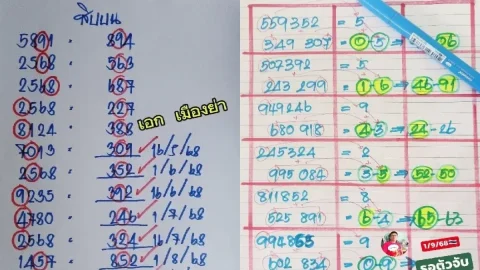 สิบบน
5891 = 894
2568 = 563
2568 = 687
2568 = 227
8124 = 388
7013 = 309 16/5/68
2568 = 352 1/6/68
9235 = 392 16/6/68
4780 = 246 1/7/68
2568 = 324 16/7/68
1457 = 852 1/8/68
เอก เมืองย่า
559352 = 5
349 307 = 0-5 ⇒ 56
507392 = 5
243 299 = 1-6 ⇒ 46-91
949246 = 9
680 918 = 4-3 ⇒ 24-26
245324 = 2
995 084 = 3-5 ⇒ 52-50
811852 = 8
525 891 = 6-4 ⇒ 65-63
994865 = 9
602 834 = 0-9 ⇒
1/9/68
รอตัวจับ